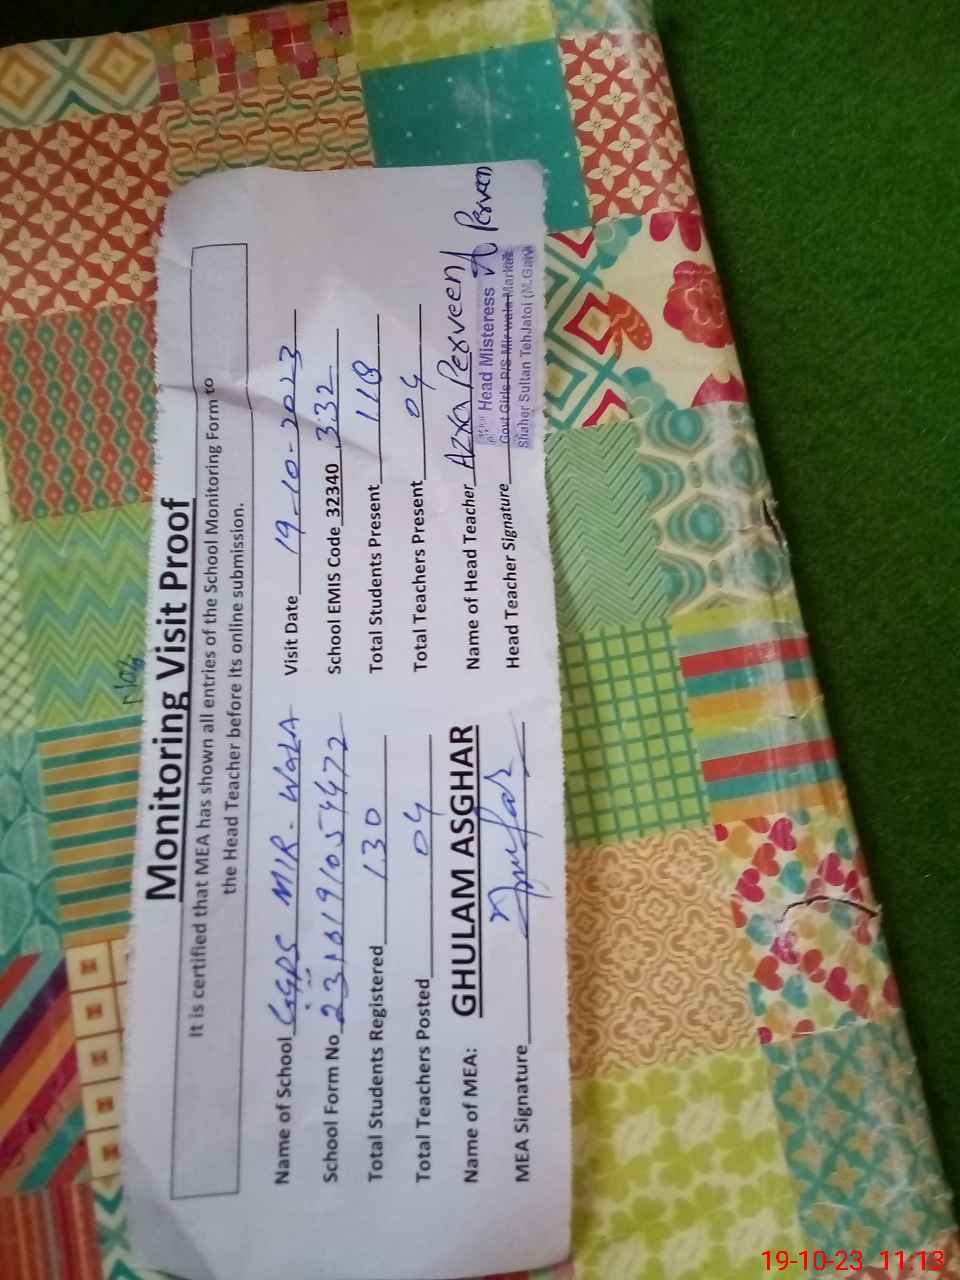 Monitoring Visit Proof
It is certified that MEA has shown all entries of the School Monitoring Form to
the Head Teacher before its online submission.
Name of School GGPS MIR-WALA Visit Date 19-10-2023
School Form No School EMIS Code 32340 332
Total Students Registered 130 Total Students Present 118
Total Teachers Posted 04 Total Teachers Present 04
Name of MEA: GHULAM ASGHAR Name of Head Teacher Azra Perveen
MEA Signature Head Teacher Signature A Perveen
Head Misteress
Govt Girls P/S Mir wala Markaz
Shaher Sultan Teh Jatoi (M.Garh)
19-10-23 11:13